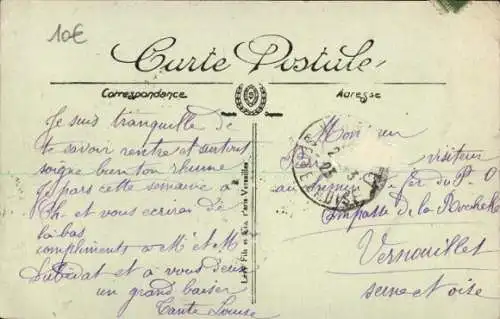 10€
Carte Postale
Correspondance
Adresse
Je suis tranquille de
te savoir rentré et surtout
soigne bien ton rhume
je pars cette semaine à
Ch. et vous écrirai de
là bas
compliments à Mr et Me
et à vous deux
un grand baiser
Tante Louise
Monsieur
visiteur
au chemin de fer du P.O
Impasse de la Rochelle
Vernouillet
seine et oise